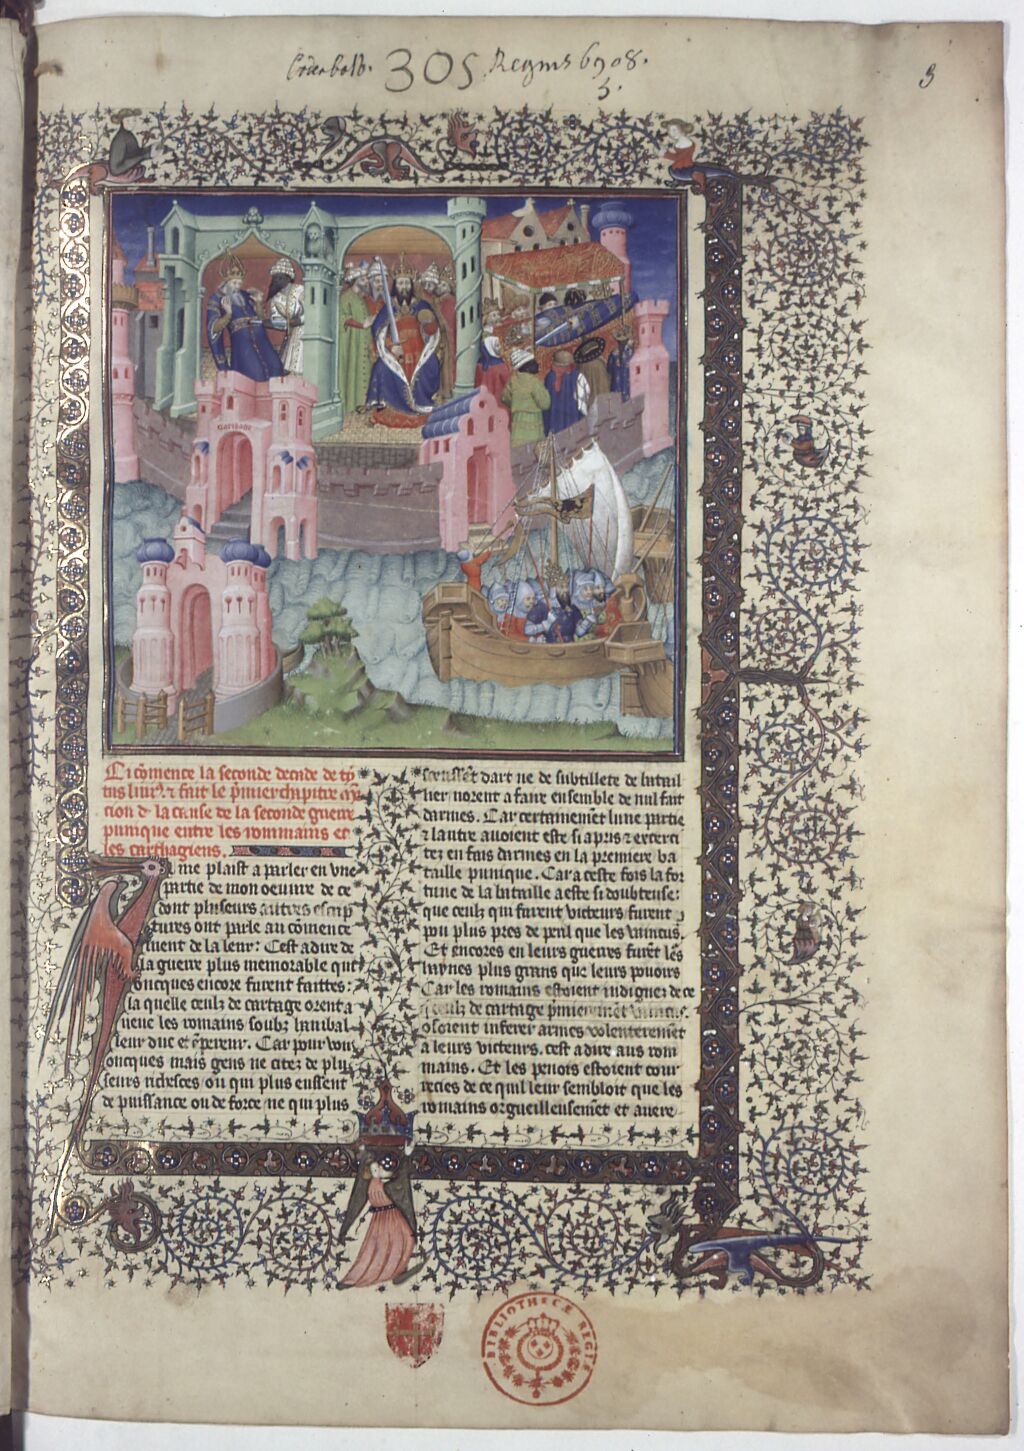 305 Regius 6908.
5.
3
Cartage
Ci cõmence la seconde decade de tytus
livi⁹. ⁊ fait le p̃mier chapitre mẽ
cion d̾ la cause de la seconde guerre
punique entre les rommains et
les carthagiens.
l me plaist a parler en vne
partie de mon oeuure de ce
dont pluseurs autres escrip
tures ont parle au cõmence
ment de la leur: Cest a dire de
la guerre plus memorable que
oncques encore furent faittes:
la quelle ceulz de cartage orent a
uecc les romains soubz hanibal
leur duc et ẽpereur. Car pour voir
oncques mais gens ne citez de plu
seurs richesces ou qui plus eussent
de puissance ou de force ne qui plus
sceussẽt dart ne de subtillete de batail
lier norent a faire ensemble de nul fait
darmes. Car certainemẽt lune partie
⁊ lautre auoient este si apris ⁊ exerci
tez en fais darmes en la premiere ba
taille punique. Car a ceste fois la for
tune de la bataille a este si doubteuse:
que ceulz qui furent victeurs furent
pou plus pres de peril que les vaincus.
Et encores en leurs guerres furẽt les
haynes plus grans que leurs pouoirs
Car les romains estoient indignez de ce
q̃ ceulz de cartage p̃mieremẽt vaincus
osoient inferer armes volenteremẽt
a leurs victeurs. cest a dire aus rom
mains. Et les penois estoient cour
recies de ce quil leur sembloit que les
romains orgueilleusemẽt et auere
BIBLIOTHECÆ REGIÆ